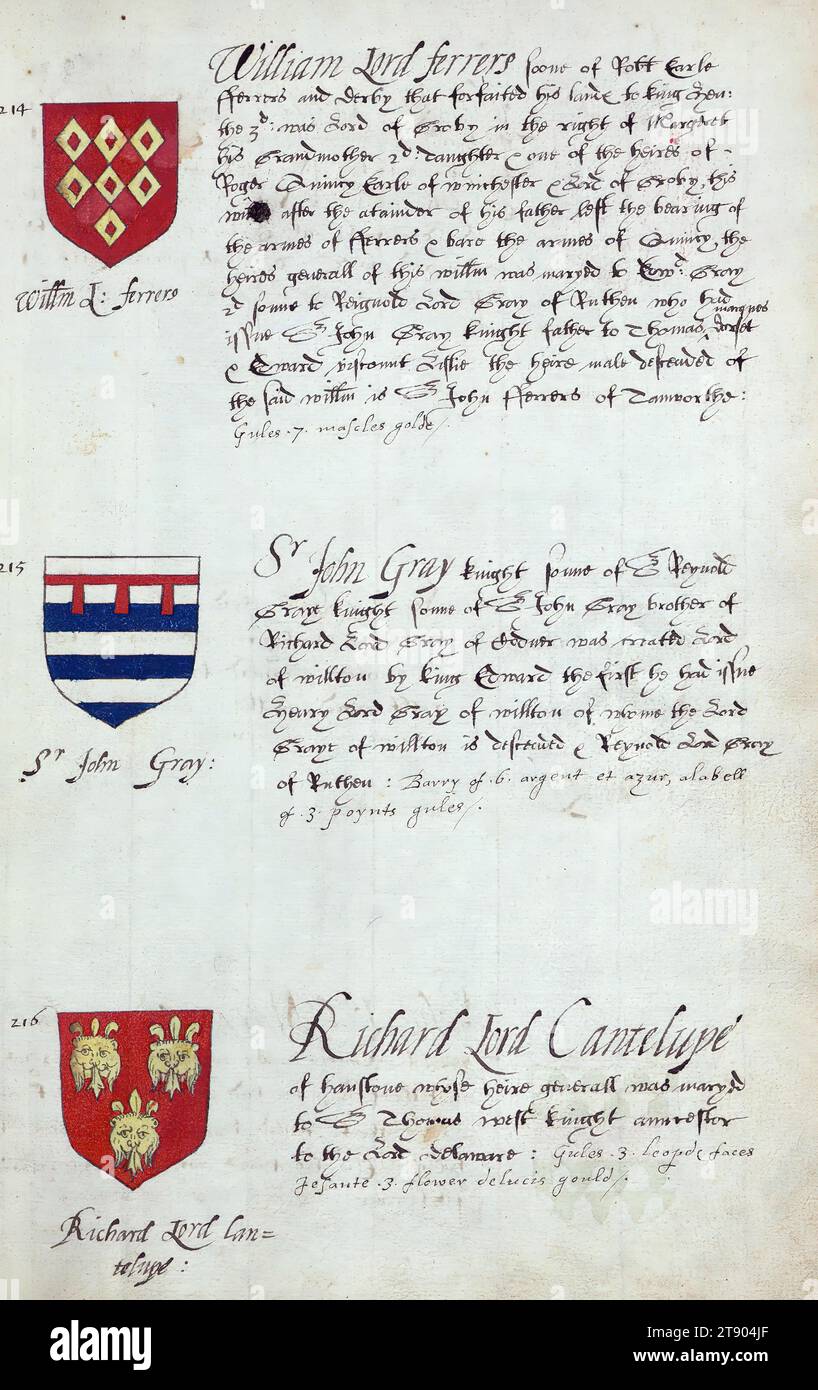 214
William Lord fferrers sonne of Robt Earle
fferrers and derby that forfaited his land to king Hen:
the 3d: was Lord of Groby in the right of Margaret
his Grandmother 2d: daughter & one of the heires of
Roger Quincy Earle of winchester & Lord of Groby, this
after the atainder of his father left the bearing of
the armes of fferrers & bare the armes of Quincy, the
heires generall of this willm was maryed to Edwd: Gray
2d sonne to Reignold Lord Gray of Ruthen who had
issue Sr John Gray knight father to Thomas marques dorset
& Edward viscount Lislie the heire male descended of
the said willm is Sr John fferrers of Tamworthe:
Gules .7. mascles golde/.
Willm L: fferrers
215
Sr John Gray knight sonne of Sr Reynold
Graye knight sonne of Sr John Gray brother of
Richard Lord Gray of Codner was created Lord
of willton by king Edward the first he had issue
Henry Lord Gray of willton of whome the Lord
Graye of willton is descended & Reynold Lord Gray
of Ruthen: Barry of .6. argent et azur, alabell
of .3. poynts gules/.
Sr John Gray:
216
Richard Lord Cantelupe
of whose heire generall was maryed
to Sr Thomas west knight anncestor
to the Lord delaware: Gules .3. leopde faces
Jesante .3. flower delucis gould/.
Richard Lord Can=
telupe:
alamy
Image ID: 2T904JF
www.alamy.com